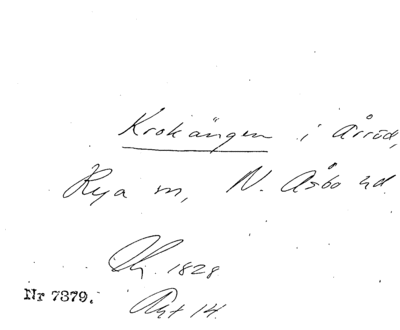 Krokängen i Årröd,
Rya sn, N. Åsbo hd.
1828
Nr 7379.
Akt 14.